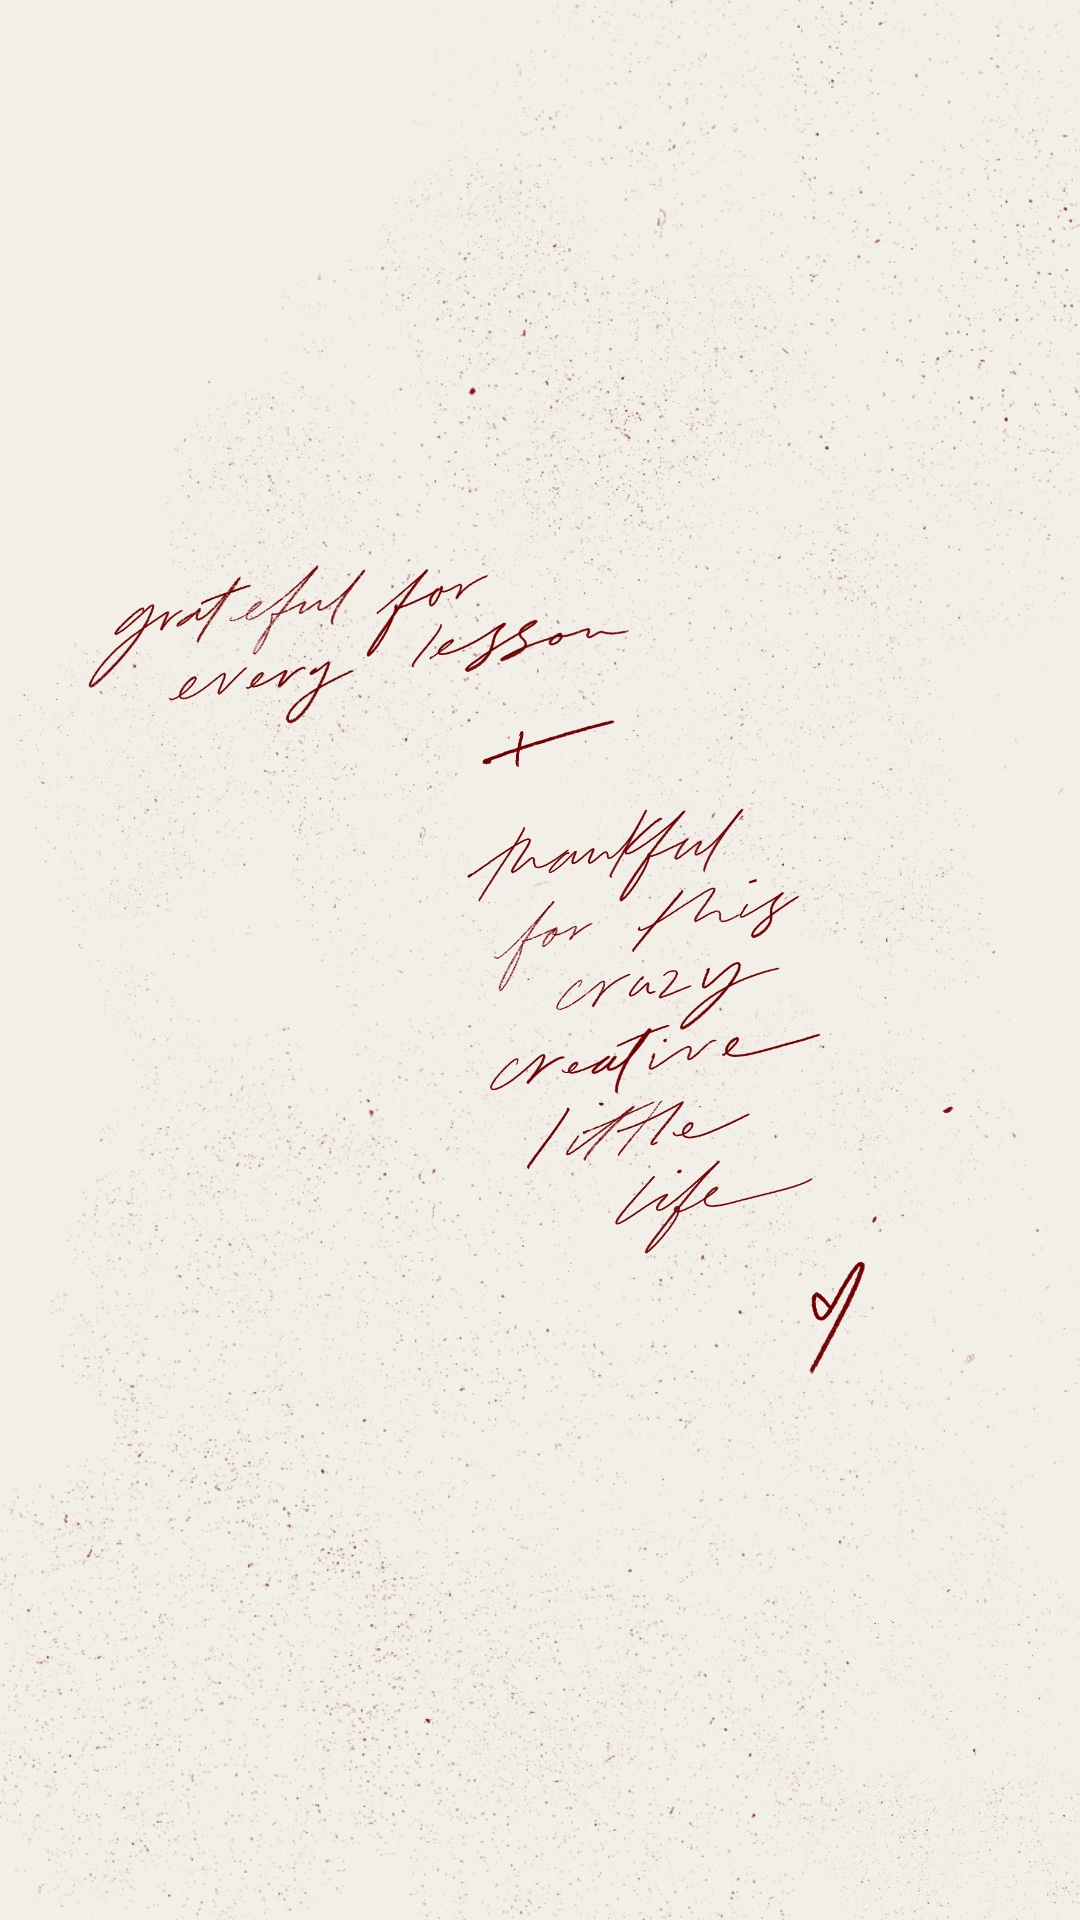 grateful for
every lesson
+
thankful
for this
crazy
creative
little
life